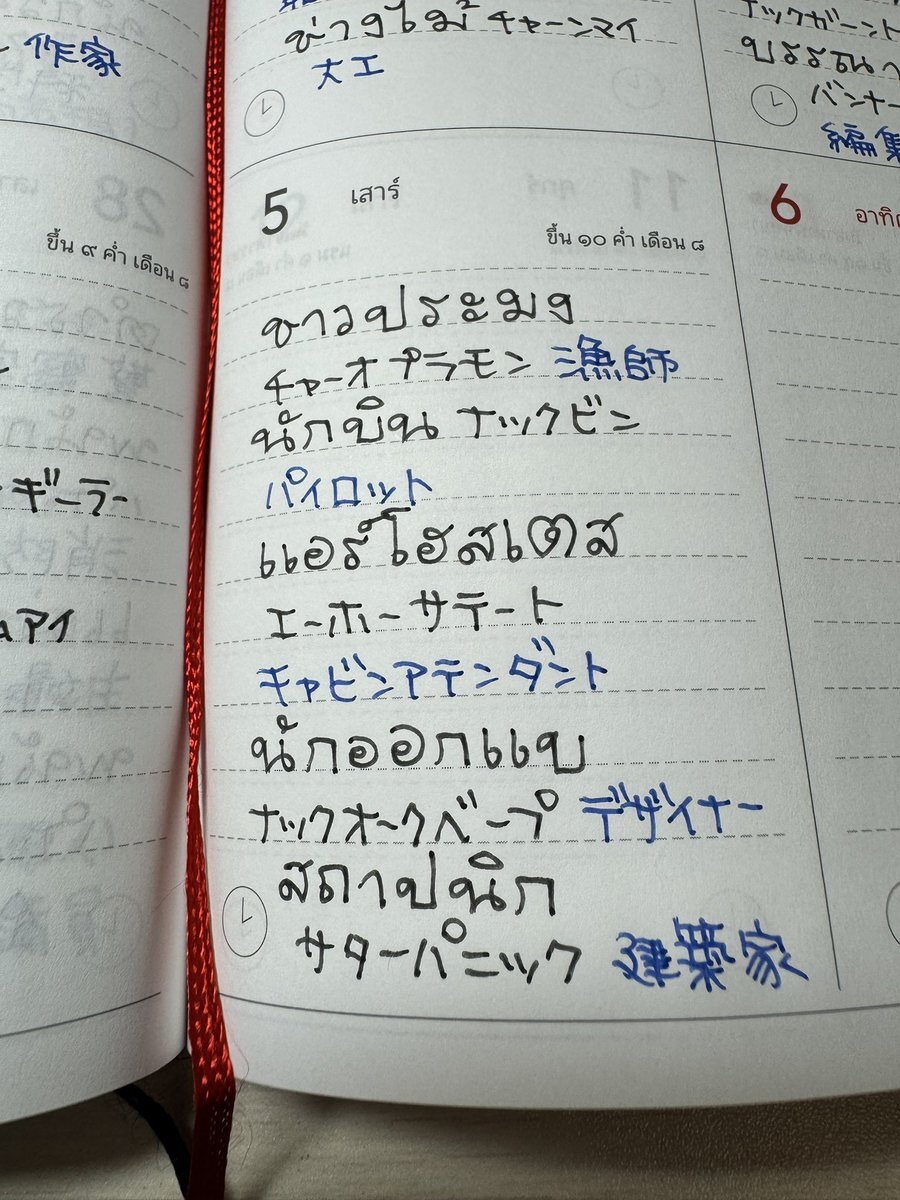 作家
ช่างไม้ チャーンマイ
大工
5 เสาร์
ขึ้น ๑๐ ค่ำ เดือน ๘
ชาวประมง
チャーオプラモン 漁師
นักบิน ナックビン
パイロット
แอร์โฮสเตส
エーホーサテート
キャビンアテンダント
นักออกแบบ
ナックオークベープ デザイナー
สถาปนิก
サターパニック 建築家
28
ขึ้น ๙ ค่ำ เดือน ๘
ギーラー
アイ
バンナー
編集
6